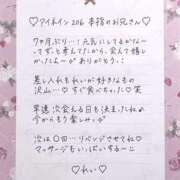 ♡アイネイン206 本指のお兄さん♡
7ヶ月ぶり…！元気にしてるかな〜
ってずっと考えてたから、会えて嬉し
かったよ〜♡ありがとう♩
差し入れもれいが好きなもの
沢山…♡すぐ食べちゃった♡笑
早速 次会える日も決まったね♡
今からもう楽しみ♡
次は〇回…リベンジさせてね♡
マッサージもいっぱいする〜♡
♡れい♡